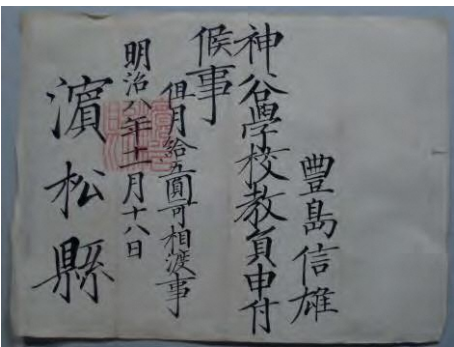 豊島信雄
神谷學校教員申付
候事
但月給五圓可相渡事
明治八年十一月十八日
濱松縣